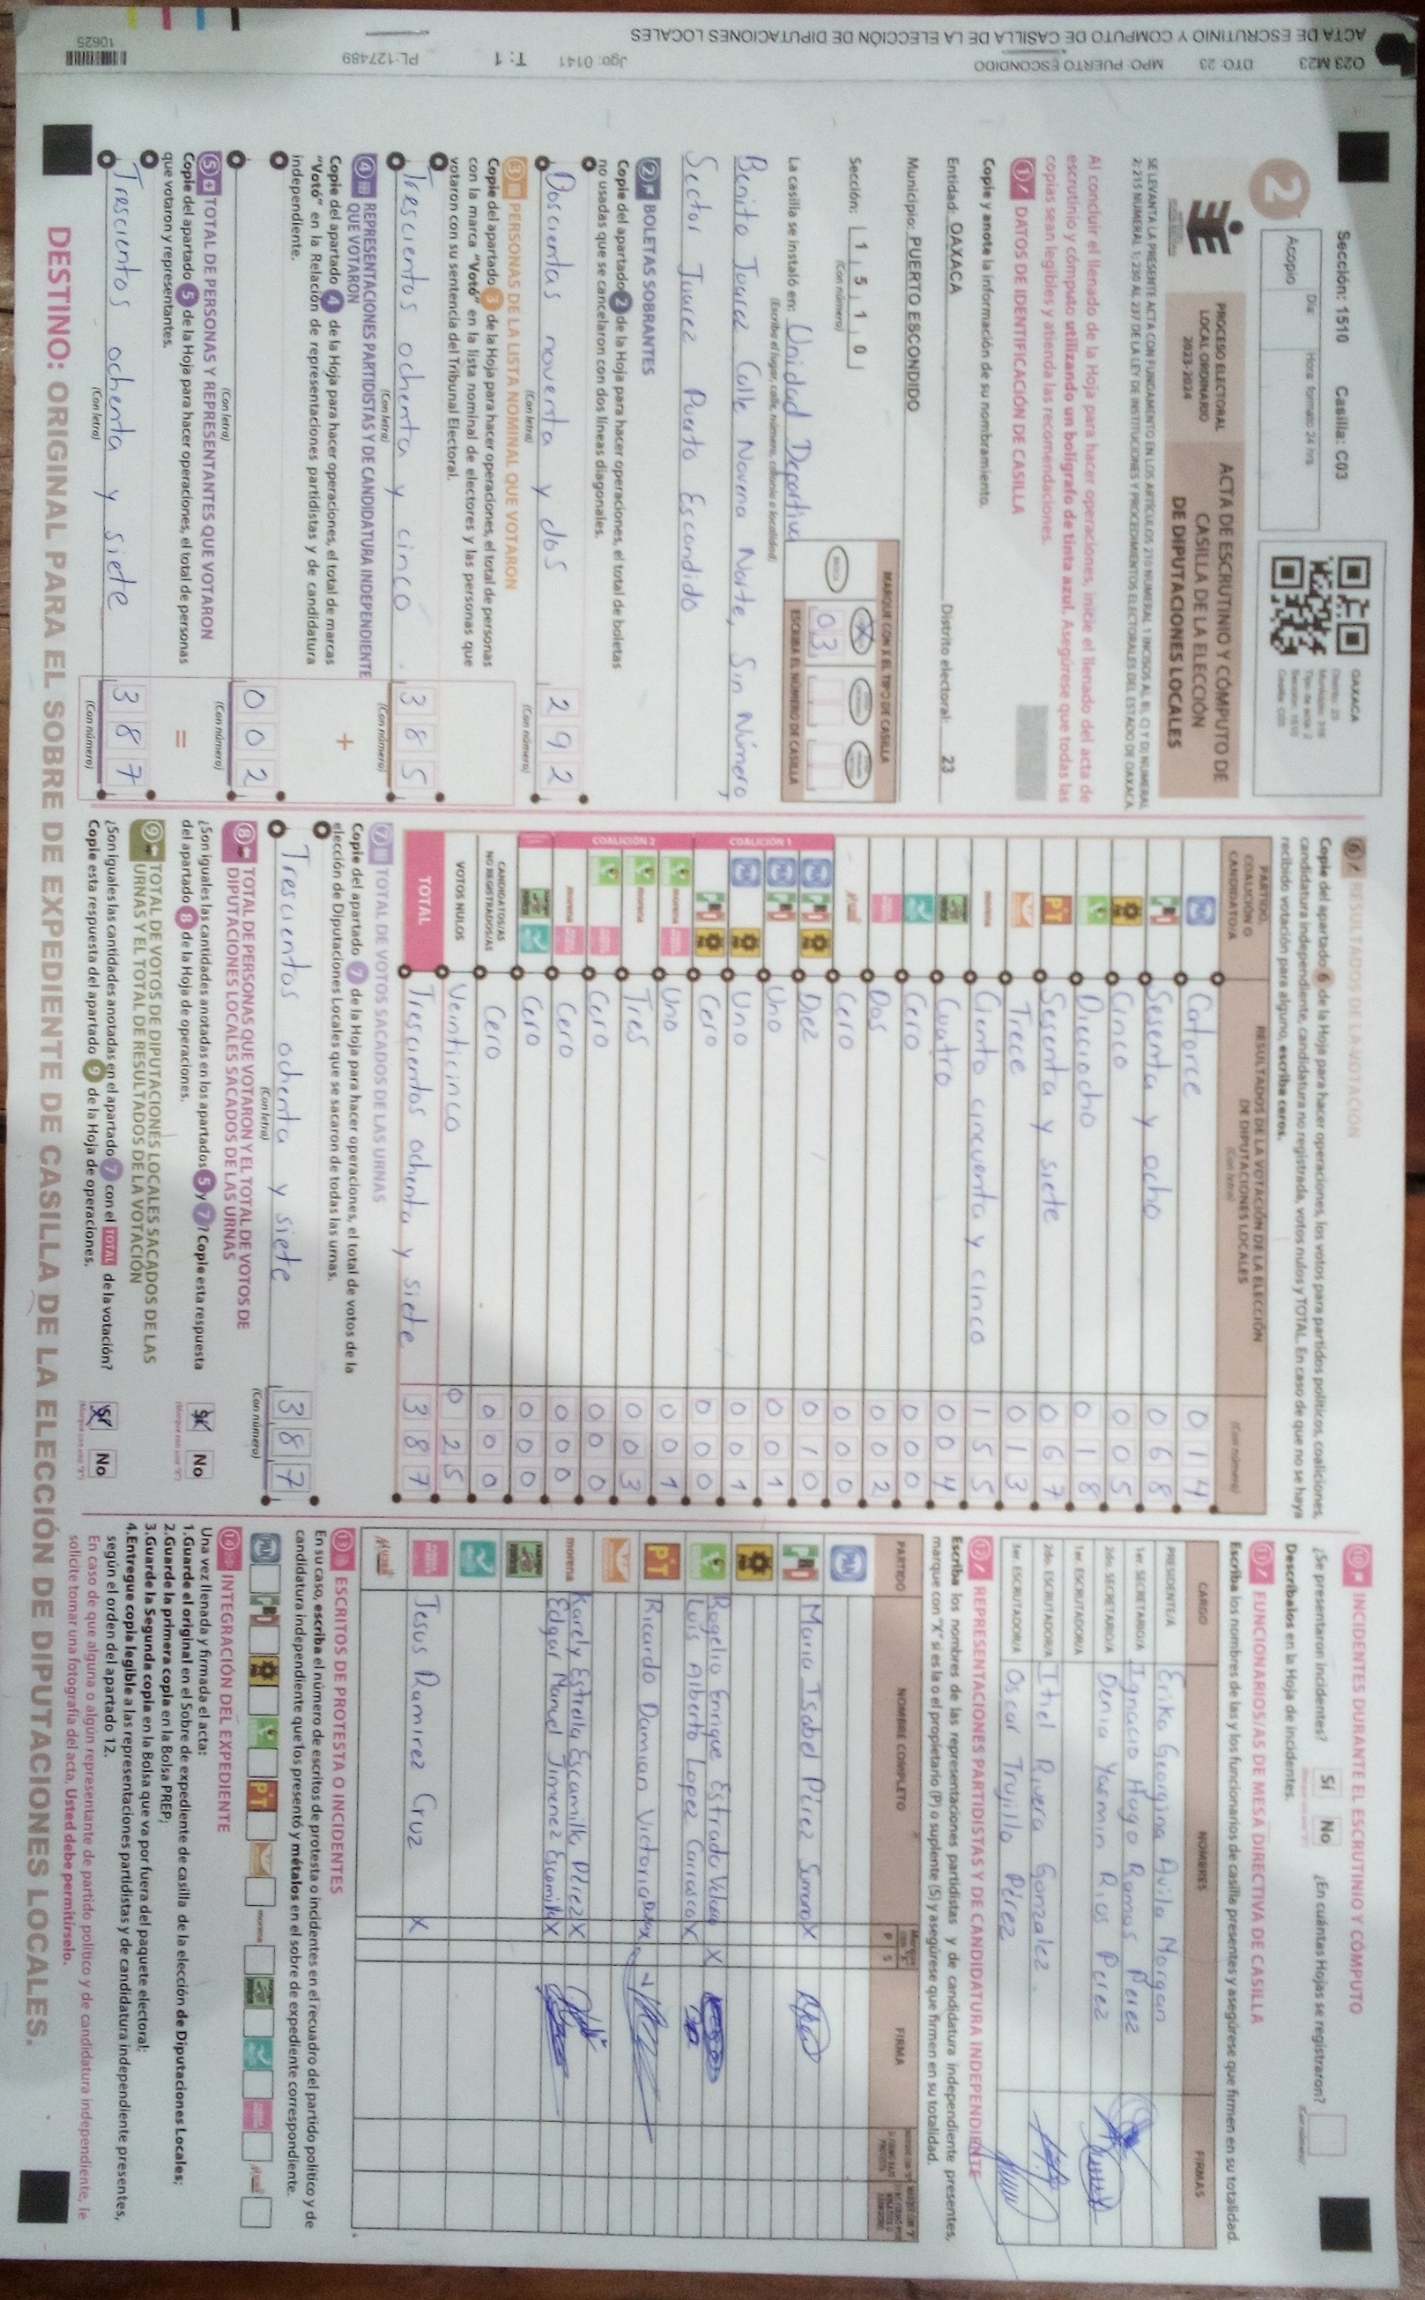 O23 M23 DTO: 23 MPO: PUERTO ESCONDIDO Jgo: 0141 T: 1 PL:127489 10625
ACTA DE ESCRUTINIO Y COMPUTO DE CASILLA DE LA ELECCIÓN DE DIPUTACIONES LOCALES
Sección: 1510 Casilla: C03
2
Acopio
Día: Hora: formato 24 hrs
OAXACA
PROCESO ELECTORAL
LOCAL ORDINARIO
2023-2024
ACTA DE ESCRUTINIO Y CÓMPUTO DE
CASILLA DE LA ELECCIÓN
DE DIPUTACIONES LOCALES
Al concluir el llenado de la Hoja para hacer operaciones, inicie el llenado del acta de
escrutinio y cómputo utilizando un bolígrafo de tinta azul. Asegúrese que todas las
copias sean legibles y atienda las recomendaciones.
1 DATOS DE IDENTIFICACIÓN DE CASILLA
Copie y anote la información de su nombramiento.
Entidad: OAXACA Distrito electoral: 23
Municipio: PUERTO ESCONDIDO
Sección: 1 5 1 0
(Con número)
MARQUE CON X EL TIPO DE CASILLA
X
ESCRIBA EL NÚMERO DE CASILLA
03
La casilla se instaló en: Unidad Deportiva
(Escriba el lugar, calle, número, colonia o localidad)
Benito Juarez Calle Novena Norte, Sin Número
Sector Juarez Puerto Escondido
2 BOLETAS SOBRANTES
Copie del apartado 2 de la Hoja para hacer operaciones, el total de boletas
no usadas que se cancelaron con dos líneas diagonales.
Doscientas noventa y dos 292
(Con letra) (Con número)
3 PERSONAS DE LA LISTA NOMINAL QUE VOTARON
Copie del apartado 3 de la Hoja para hacer operaciones, el total de personas
con la marca “Votó” en la lista nominal de electores y las personas que
votaron con su sentencia del Tribunal Electoral.
Trescientos ochenta y cinco 385
(Con letra) (Con número)
4 REPRESENTACIONES PARTIDISTAS Y DE CANDIDATURA INDEPENDIENTE
QUE VOTARON
Copie del apartado 4 de la Hoja para hacer operaciones, el total de marcas
“Votó” en la Relación de representaciones partidistas y de candidatura
independiente.
+
002
(Con letra) (Con número)
5 TOTAL DE PERSONAS Y REPRESENTANTES QUE VOTARON
Copie del apartado 5 de la Hoja para hacer operaciones, el total de personas
que votaron y representantes.
=
Trescientos ochenta y siete 387
(Con letra) (Con número)
6 RESULTADOS DE LA VOTACIÓN
Copie del apartado 6 de la Hoja para hacer operaciones, los votos para partidos políticos, coaliciones,
candidatura independiente, candidatura no registrada, votos nulos y TOTAL. En caso de que no se haya
recibido votación para alguno, escriba ceros.
PARTIDO, COALICIÓN O CANDIDATO/A
RESULTADOS DE LA VOTACIÓN DE LA ELECCIÓN
DE DIPUTACIONES LOCALES
(Con letra) (Con número)
PAN Catorce 014
PRI Sesenta y ocho 068
Cinco 005
Dieciocho 018
PT Sesenta y siete 067
Trece 013
morena Ciento cincuenta y cinco 155
Cuatro 004
Cero 000
Dos 002
Cero 000
COALICIÓN 1
Diez 010
Uno 001
Uno 001
Cero 000
COALICIÓN 2
morena Uno 001
morena Tres 003
Cero 000
morena Cero 000
Cero 000
CANDIDATOS/AS NO REGISTRADOS/AS Cero 000
VOTOS NULOS Veinticinco 025
TOTAL Trescientos ochenta y siete 387
7 TOTAL DE VOTOS SACADOS DE LAS URNAS
Copie del apartado 7 de la Hoja para hacer operaciones, el total de votos de la
elección de Diputaciones Locales que se sacaron de todas las urnas.
Trescientos ochenta y siete 387
(Con letra) (Con número)
8 TOTAL DE PERSONAS QUE VOTARON Y EL TOTAL DE VOTOS DE
DIPUTACIONES LOCALES SACADOS DE LAS URNAS
¿Son iguales las cantidades anotadas en los apartados 5 y 7? Copie esta respuesta
del apartado 8 de la Hoja de operaciones.
Sí No
9 TOTAL DE VOTOS DE DIPUTACIONES LOCALES SACADOS DE LAS
URNAS Y EL TOTAL DE RESULTADOS DE LA VOTACIÓN
¿Son iguales las cantidades anotadas en el apartado 7 con el TOTAL de la votación?
Copie esta respuesta del apartado 9 de la Hoja de operaciones.
Sí No
10 INCIDENTES DURANTE EL ESCRUTINIO Y CÓMPUTO
¿Se presentaron incidentes? Sí No ¿En cuántas Hojas se registraron?
(Con número)
Descríbalos en la Hoja de incidentes.
11 FUNCIONARIOS/AS DE MESA DIRECTIVA DE CASILLA
Escriba los nombres de las y los funcionarios de casilla presentes y asegúrese que firmen en su totalidad.
CARGO NOMBRES FIRMAS
PRESIDENTE/A Erika Georgina Avila Morgan
1er. SECRETARIO/A Ignacio Hugo Ramos Perez
2do. SECRETARIO/A Denia Yasmin Rios Perez
1er. ESCRUTADOR/A
2do. ESCRUTADOR/A Itiel Rivera Gonzalez
3er. ESCRUTADOR/A Oscar Trujillo Pérez
12 REPRESENTACIONES PARTIDISTAS Y DE CANDIDATURA INDEPENDIENTE
Escriba los nombres de las representaciones partidistas y de candidatura independiente presentes,
marque con “X” si es la o el propietario (P) o suplente (S) y asegúrese que firmen en su totalidad.
PARTIDO NOMBRE COMPLETO P S FIRMA
PAN
PRI Maria Isabel Pérez X
Rogelio Enrique Estrada X
Luis Alberto Lopez Carrasco X
PT Ricardo Damian Victoria X
morena Karely Estrella Escamilla Pérez X
Edgar Manuel Jimenez Escamilla X
Jesus Ramirez Cruz X
13 ESCRITOS DE PROTESTA O INCIDENTES
En su caso, escriba el número de escritos de protesta o incidentes en el recuadro del partido político y de
candidatura independiente que los presentó y métalos en el sobre de expediente correspondiente.
PAN PT morena
14 INTEGRACIÓN DEL EXPEDIENTE
Una vez llenada y firmada el acta:
1.Guarde el original en el Sobre de expediente de casilla de la elección de Diputaciones Locales;
2.Guarde la primera copia en la Bolsa PREP;
3.Guarde la Segunda copia en la Bolsa que va por fuera del paquete electoral;
4.Entregue copia legible a las representaciones partidistas y de candidatura independiente presentes,
según el orden del apartado 12.
En caso de que alguna o algún representante de partido político y de candidatura independiente, le
solicite tomar una fotografía del acta, Usted debe permitírselo.
DESTINO: ORIGINAL PARA EL SOBRE DE EXPEDIENTE DE CASILLA DE LA ELECCIÓN DE DIPUTACIONES LOCALES.